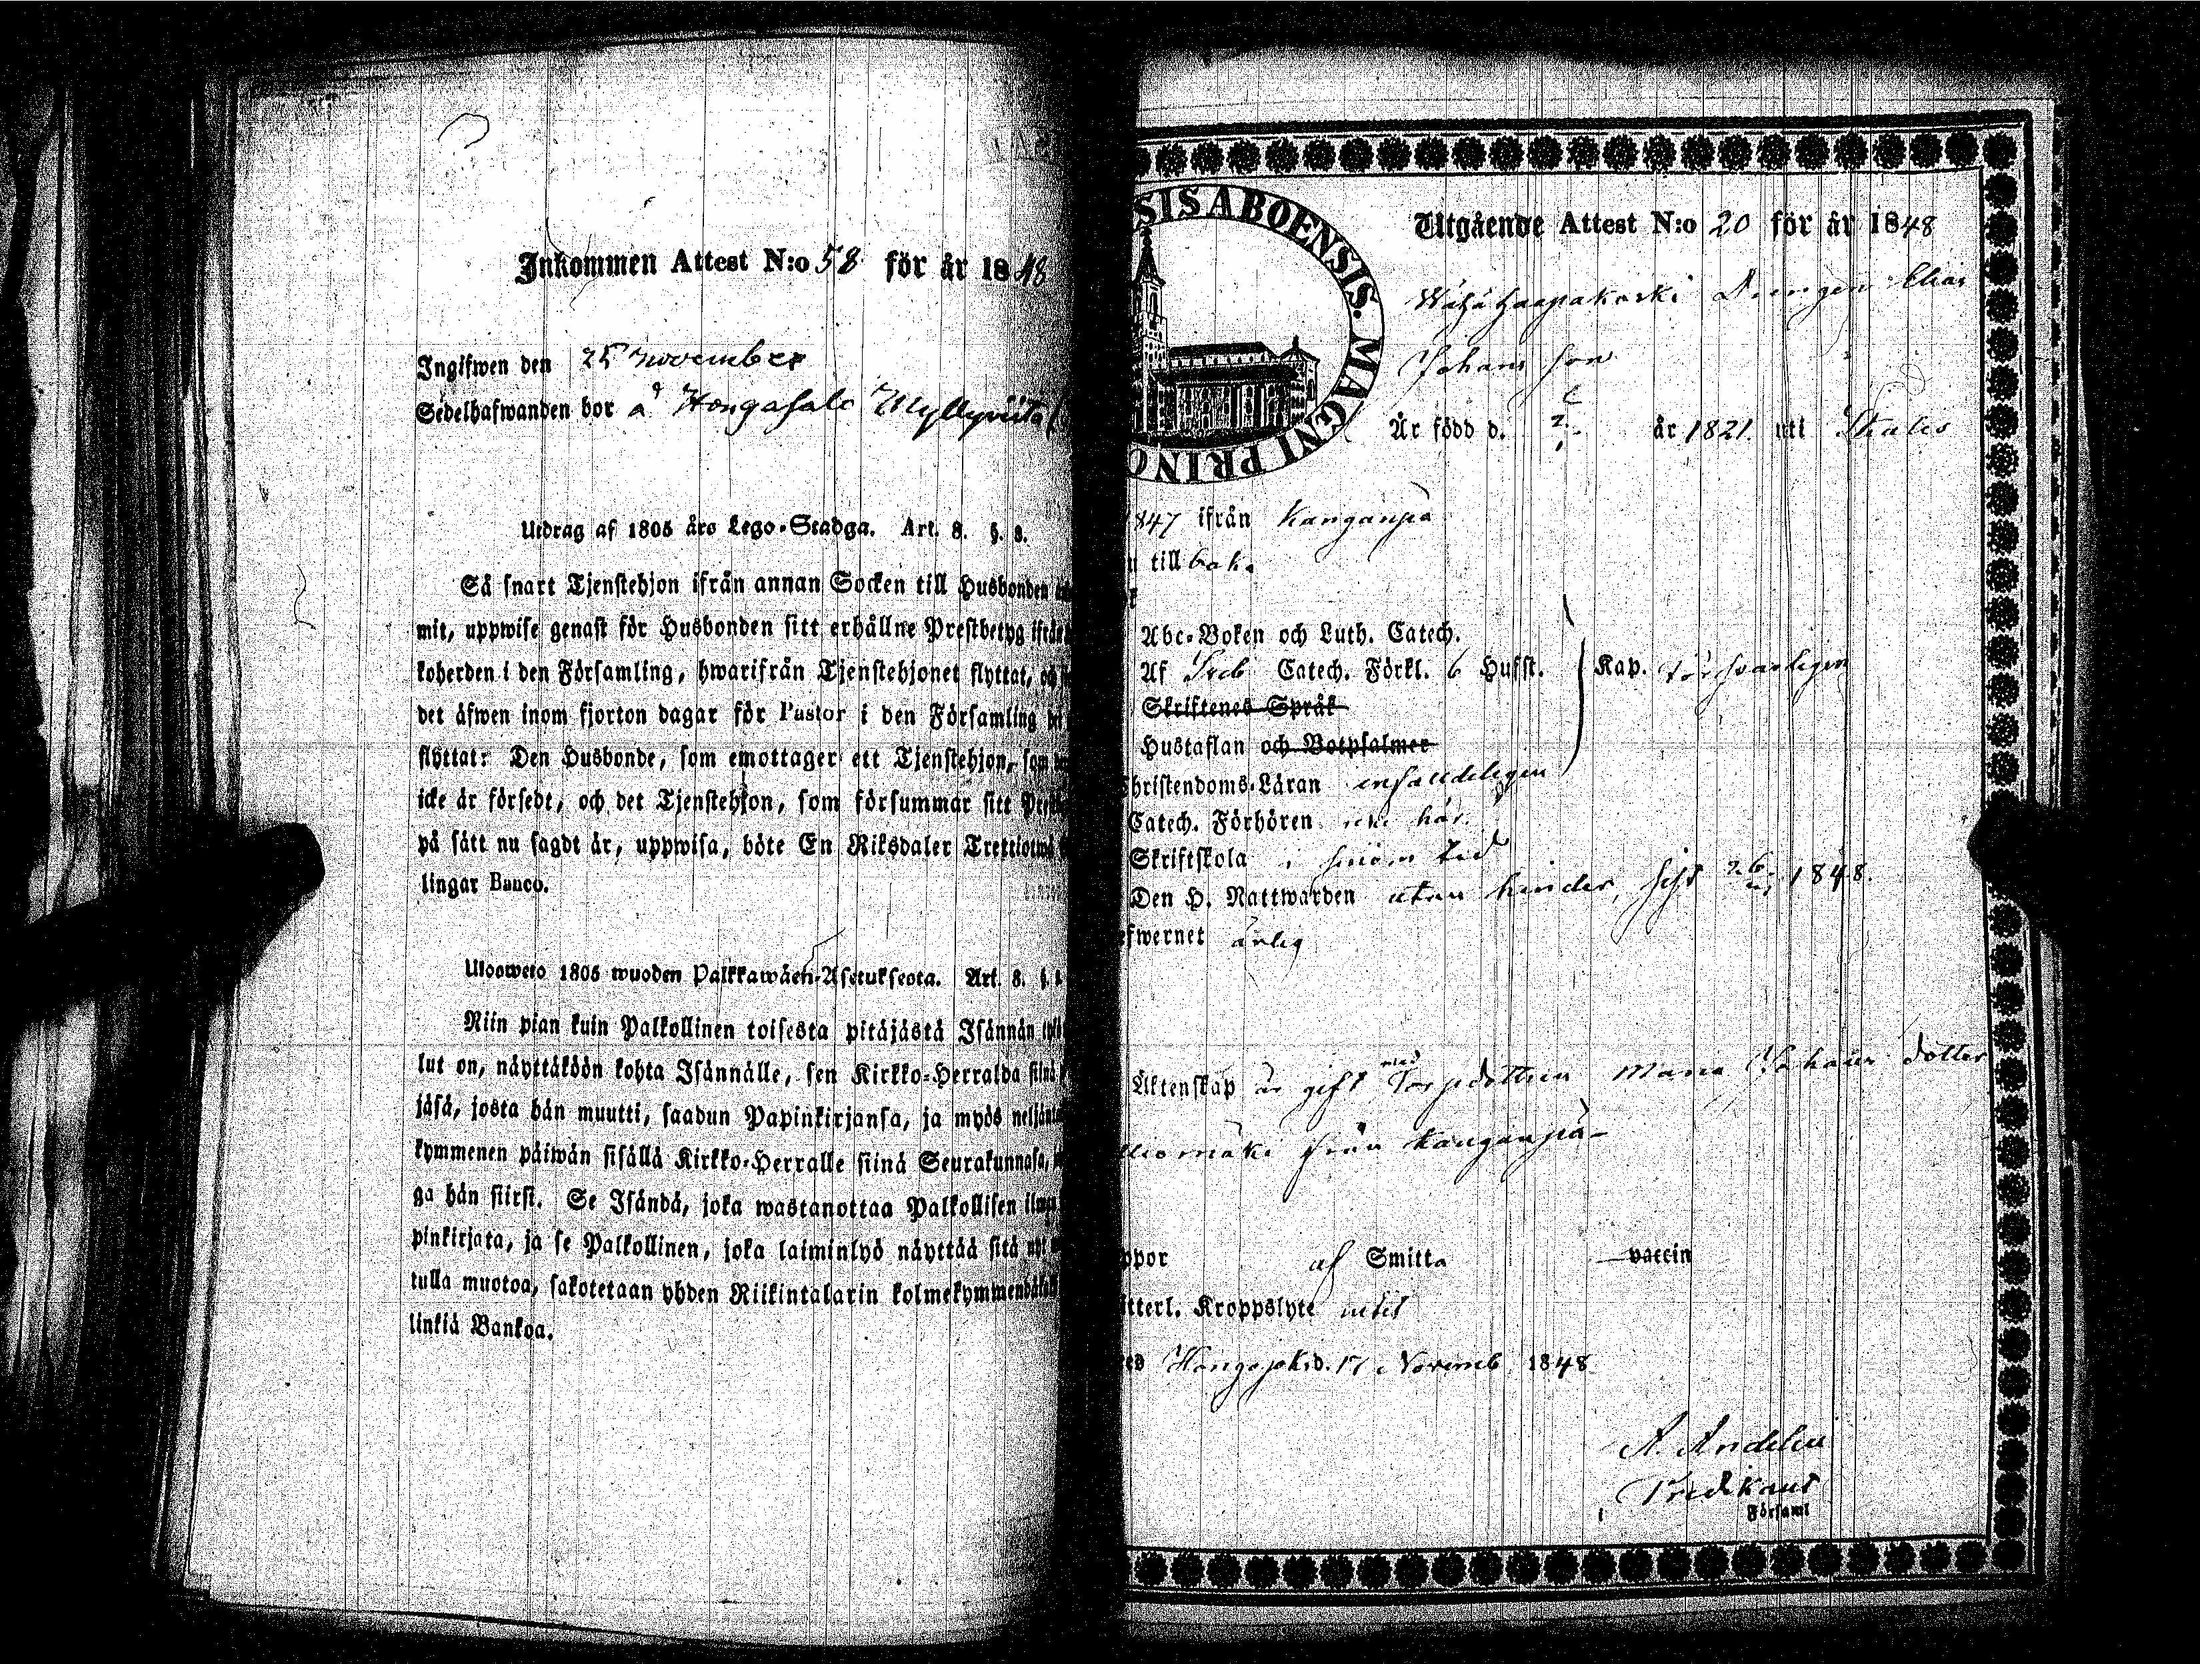 Inkommen Attest N:o 58 för år 1848
Ingifwen den 25 november
Sedelhafwanden bor å Hongasalo Myllyviita
Utdrag af 1805 års Lego-Stadga. Art. 8. §. 8.
Så snart Tjenstehjon ifrån annan Socken till Husbonden
mit, uppwise genast för Husbonden sitt erhållne Prestbetyg ifrån
koherden i den Församling, hwarifrån Tjenstehjonet flyttat,
det äfwen inom fjorton dagar för Pastor i den Församling
flyttat: Den Husbonde, som emottager ett Tjenstehjon, som
icke är försedt, och det Tjenstehjon, som försummar sitt
på sätt nu sagdt är, uppwisa, böte En Riksdaler Trettiotwå
lingar Banco.
Ulosweto 1805 wuoden Palkkawäen-Asetuksesta. Art. 8. §.
Niin pian kuin Palkollinen toisesta pitäjästä Isännän
lut on, näyttäköön kohta Isännälle, sen Kirkko-Herralda siinä
jäsä, josta hän muutti, saadun Papinkirjansa, ja myös
kymmenen päiwän sisällä Kirkko-Herralle siinä Seurakunnasa,
ga hän siirst. Se Isändä, joka wastanottaa Palkollisen
pinkirjata, ja se Palkollinen, joka laiminlyö näyttää sitä
tulla muotoa, sakotetaan yhden Riikintalarin
linkiä Bankoa.
SIS ABOENSIS. MAGNI PRINC
Utgående Attest N:o 20 för år 1848
Wähähaapakoski Drengen Elias
Johans son
År född d. år 1821. uti Ikalis
1847 ifrån Kanganpä
n till bak.
Abc-Boken och Luth. Catech.
Af Sveb Catech. Förkl. 6 Husst. Kap. försvarligen
Skriftenes Språk
Hustaflan och Botpsalmer
Christendoms-Läran enfaldeligen
Catech. Förhören här.
Skriftskola i sinom tid
Den H. Nattwarden utan hinder, sist 1848.
efwernet ärlig
Äktenskap är gift med Torpdottren Maria Johans dotter
från Kanganpä
ppor af Smitta vaccin
itterl. Kroppslyte intet
d. 17 Novemb 1848
A. Andelin
Predikant
i Församl